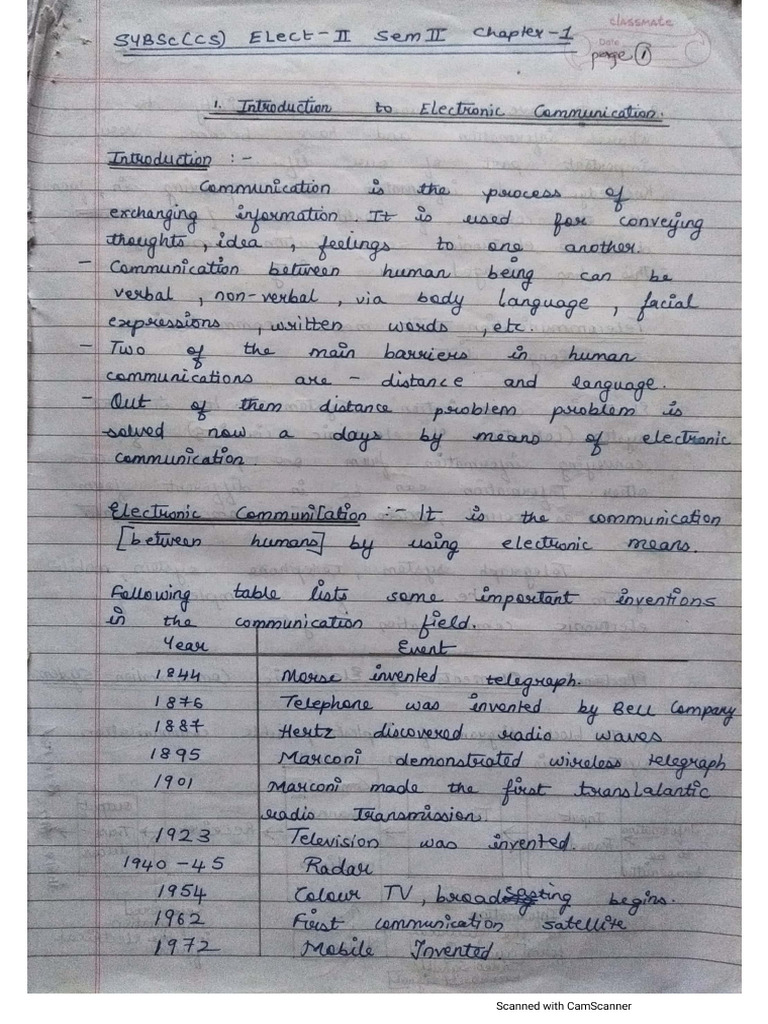 classmate
SYBSc(CS) Elect-II Sem II Chapter-1
Date
page 1
1. Introduction to Electronic Communication.
Introduction :-
Communication is the process of
exchanging information. It is used for conveying
thoughts, idea, feelings to one another.
- Communication between human being can be
verbal, non-verbal, via body language, facial
expressions, written words, etc.
- Two of the main barriers in human
communications are - distance and language.
- Out of them distance problem problem is
solved now a days by means of electronic
communication.
Electronic Communication :- It is the communication
[between humans] by using electronic means.
Following table lists some important inventions
in the communication field.
Year Event
1844 Morse invented telegraph.
1876 Telephone was invented by Bell Company
1887 Hertz discovered radio waves
1895 Marconi demonstrated wireless telegraph
1901 Marconi made the first translalantic
radio Transmission.
1923 Television was invented.
1940-45 Radar
1954 Colour TV, broadcasting begins.
1962 First communication satellite
1972 Mobile Invented.
Scanned with CamScanner